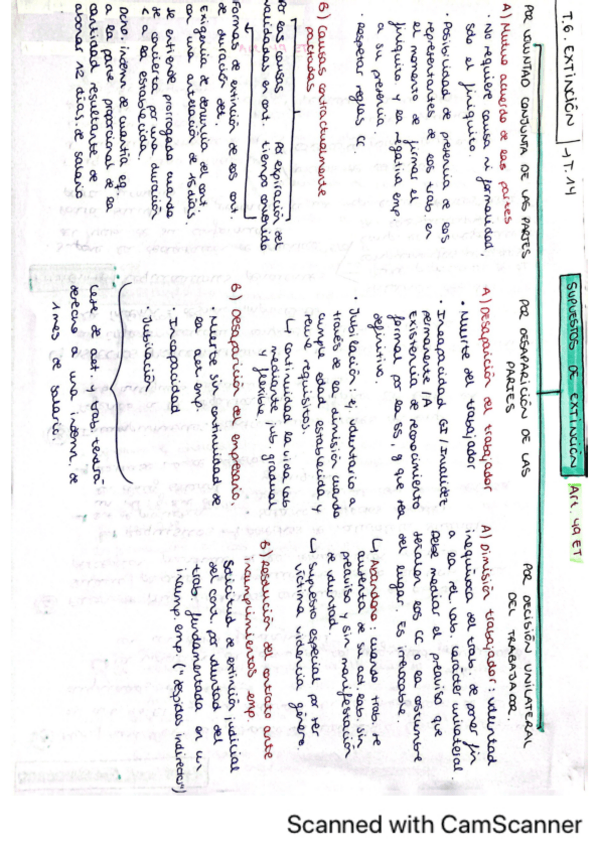 T.6. EXTINCIÓN → T.14
SUPUESTOS DE EXTINCIÓN Art. 49 ET
POR VOLUNTAD CONJUNTA DE LAS PARTES
A) Mutuo acuerdo de las partes
· No requiere causa ni formalidad,
sólo el finiquito.
· Posibilidad de presencia de los
representantes de los trab. en
el momento de firmar el
finiquito y la negativa emp.
a su presencia.
· Respetar reglas CC.
B) Causas contractualmente
pactadas
Por las causas
validadas en cont.
Por expiración del
tiempo convenido
Formas de extinción de los cont.
de duración det.
Exigencia de denuncia del cont.
con una antelación de 15 días
se entiende prorrogado cuando
se concierta por una duración
< a la establecida.
Dcho. indemn. de cuantía eq.
a la parte proporcional de la
cantidad resultante de
abonar 12 días de salario
POR DESAPARICIÓN DE LAS
PARTES
A) Desaparición del trabajador
· Muerte del trabajador
· Incapacidad GI / Invalidez
permanente IA
Existencia de reconocimiento
formal por la SS, y que sea
definitiva.
· Jubilación: tj. voluntario a
través de la dimisión cuando
cumple edad establecida y
reúne requisitos.
↳ Continuidad la vida lab
mediante jub. gradual
y flexible.
B) Desaparición del empresario
· Muerte sin continuidad de
la act. emp.
· Incapacidad
· Jubilación
Cese de act. y trab. tendrá
derecho una indemn. de
1 mes de salario.
POR DECISIÓN UNILATERAL
DEL TRABAJADOR.
A) Dimisión trabajador: voluntad
inequívoca del trab. de poner fin
a la rel. lab. carácter unilateral.
Debe mediar el preaviso que
señalen los CC o la costumbre
del lugar. Es irrevocable.
↳ Abandono: cuando trab. se
ausenta de su act. lab. sin
preaviso y sin manifestación
de voluntad
↳ Supuesto especial por ser
víctima violencia género.
B) Resolución del contrato ante
incumplimientos emp.
Solicitud de extinción judicial
del cont. por voluntad del
trab. fundamentada en un
incump. emp. ("despido indirecto")
Scanned with CamScanner